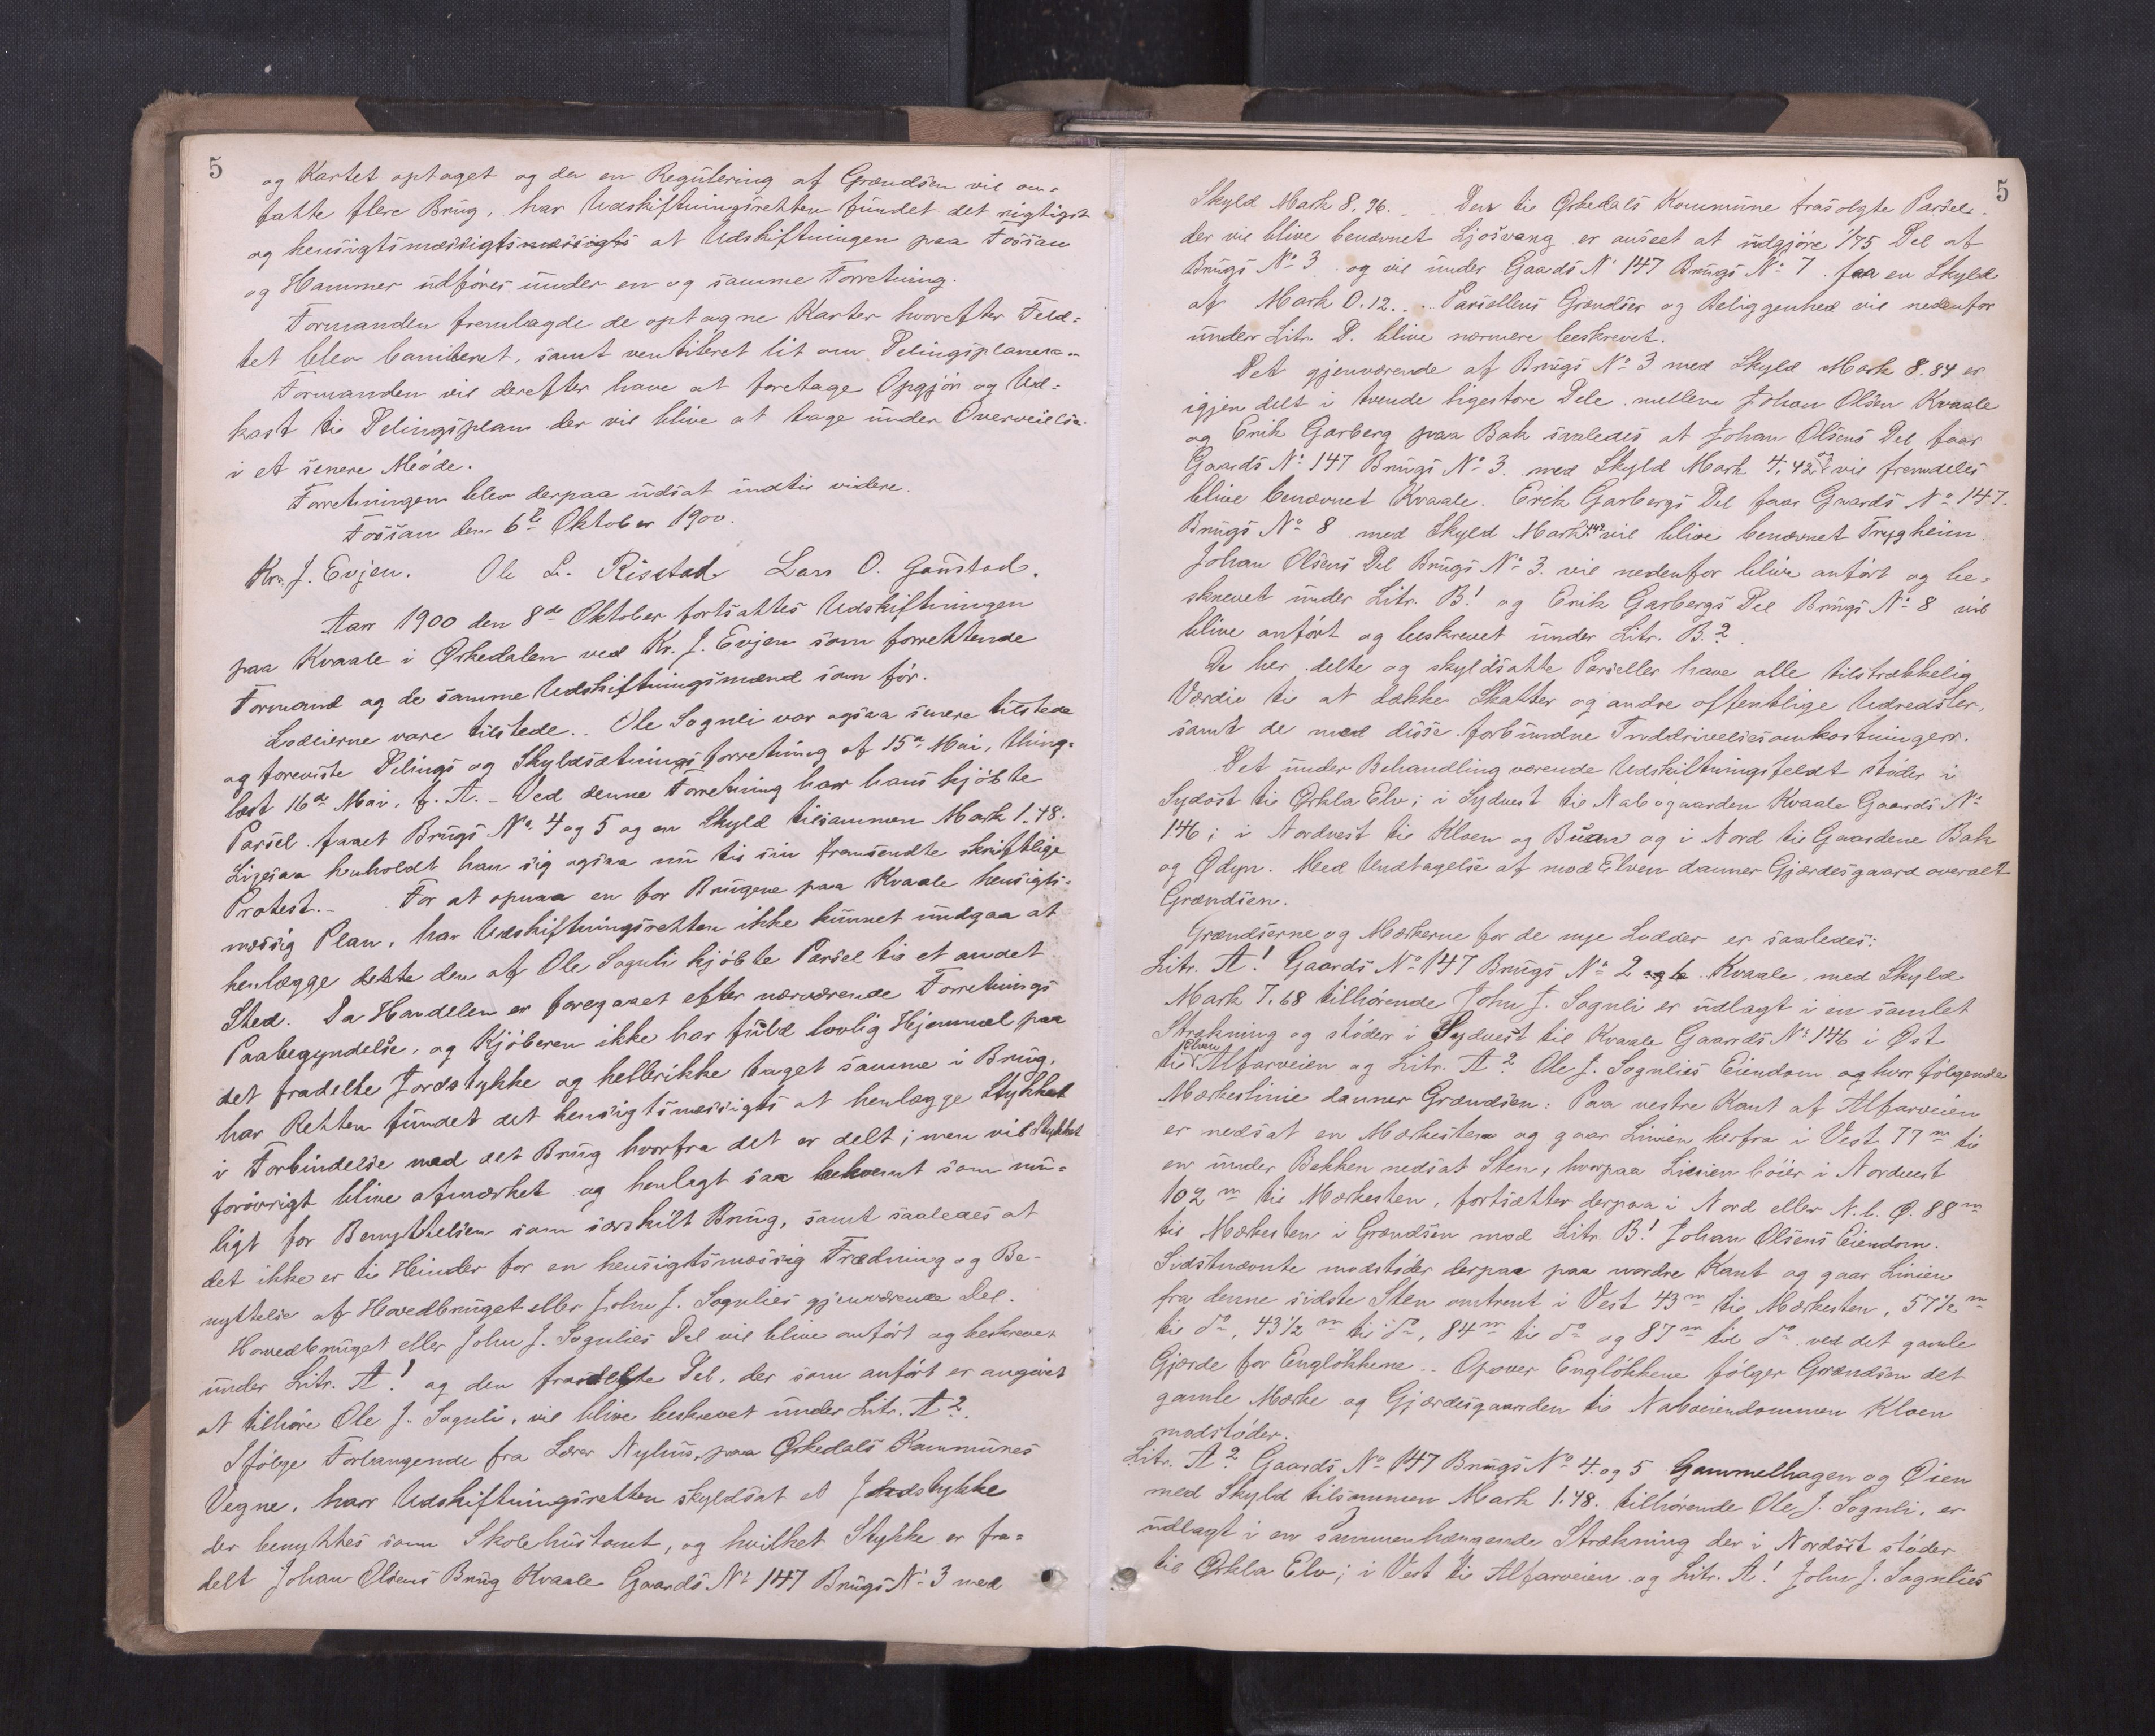 5
og Kartet optaget og da en Regulering af Grændsen vil om-
fatte flere Brug, har Udskiftningsretten fundet det rigtigst
og hensigtsmæssigtsmæssigts at Udskiftningen paa Fossan
og Hammer udföres under en og samme Forretning.
Formanden fremlagde de optagne Karter hvorefter Feld-
tet blev boniteret, samt ventileret lit om Delingsplanen.
Formanden vil derefter have at foretage Opgjör og Ud-
kast til Delingsplan der vil blive at tage under Overveielse
i et senere Möde.
Forretningen blev derpaa udsat indtil videre.
Fossan den 6te Oktober 1900.
Kr. J. Evjen. Ole L. Risstad Lars O. Gamstad.
Aar 1900 den 8de Oktober fortsattes Udskiftningen
paa Kvaale i Ørkedalen ved Kr. J. Evjen som forrettende
Formand og de samme Udskiftningsmænd som för.
Lodeierne vare tilstede. Ole Sognli var ogsaa senere tilstede
og foreviste Delings og Skyldsætningsforretning af 15de Mai, thing-
læst 16de Mai, f. A. - Ved denne Forretning har hans kjöbte
Parsel faaet Brugs No. 4 og 5 og en Skyld tilsammen Mark 1.48.
Ligesaa henholdt han sig ogsaa nu til sin fremsendte skriftlige
Protest. - For at opnaa en for Brugene paa Kvaale hensigts-
mæssig Plan, har Udskiftningsretten ikke kunnet undgaa at
henlægge dette den af Ole Sognli kjöbte Parsel til et andet
Sted. Da Handelen er foregaaet efter nærværende Forretnings
Paabegyndelse, og Kjöberen ikke har fuld lovlig Hjemmel paa
det fradelte Jordstykke og hellerikke taget samme i Brug,
har Retten fundet det hensigtsmæssigts at henlægge Stykket
i Forbindelse med det Brug hvorfra det er delt; men vil Stykket
forövrigt blive afmærket og henlagt saa bekvemt som mu-
ligt for Benyttelsen som særskilt Brug, samt saaledes at
det ikke er til Hinder for en hensigtsmæssig Fredning og Be-
nyttelse af Hovedbruget eller John J. Sognlies gjenværende Del.
Hovedbruget eller John J. Sognlies Del vil blive anfört og beskrevet
under Litr. A1 og den fradelte Del, der som anfört er angivet
at tilhöre Ole J. Sognli, vil blive beskrevet under Litr. A2.
Ifölge Forlangende fra Lærer Nyhus, paa Ørkedals Kommunes
Vegne, har Udskiftningsretten skyldsat et Jordstykke
der benyttes som Skolehustomt, og hvilket Stykke er fra-
delt Johan Olsens Brug Kvaale Gaards No 147 Brugs No 3 med
5
Skyld Mark 8.96. Den til Ørkedals Kommune frasolgte Parsel
der vil blive benævnet Ljosvang er anseet at udgjöre 1/75 Del af
Brugs No 3 og vil under Gaards No 147 Brugs No 7 faa en Skyld
af Mark 0.12. Parsellens Grændser og Beliggenhed vil nedenfor
under Litr. D. blive nærmere beskrevet.
Det gjenværende af Brugs No 3 med Skyld Mark 8.84 er
igjen delt i tvende ligestore Dele mellem Johan Olsen Kvaale
og Erik Garberg paa Bak saaledes at Johan Olsens Del faar
Gaards No 147 Brugs No 3. med Skyld Mark 4.42 og vil fremdeles
blive benævnet Kvaale. Erik Garbergs Del faar Gaards No 147
Brugs No 8 med Skyld Mark 4.42 vil blive benævnet Trygheim
Johan Olsens Del Brugs No 3. vil nedenfor blive anfört og be-
skrevet under Litr. B1 og Erik Garbergs Del Brugs No 8 vil
blive anfört og beskrevet under Litr. B.2.
De her delte og skyldsatte Parseller have alle tilstrækkelig
Værdie til at dække Skatter og andre offentlige Udredsler,
samt de med disse forbundne Inddrivelsesomkostninger.
Det under Behandling værende Udskiftningsfeldt stöder i
Sydöst til Ørkla Elv; i Sydvest til Nabogaarden Kvaale Gaards No
146; i Nordvest til Kloen og Buan og i Nord til Gaardene Bak
og Ødyn. Med Undtagelse af mod Elven danner Gjærdesgaard overalt
Grændsen.
Grændserne og Mærkerne for de nye Lodder er saaledes:
Litr. A1 Gaards No 147 Brugs No 2 og 6. Kvaale med Skyld
Mark 7.68 tilhörende John J. Sognli er udlagt i en samlet
Strækning og stöder i Sydvest til Kvaale Gaards No 146 i Øst
til Elven Alfarveien og Litr. A2 Ole J. Sognlies Eiendom og hvor fölgende
Mærkeslinie danner Grændsen: Paa vestre Kant af Alfarveien
er nedsat en Mærkesten og gaar Linien herfra i Vest 77 m til
en under Bakken nedsat Sten, hvorpaa Linien böier i Nordvest
102 m til Mærkesten, fortsætter derpaa i Nord eller N.t. Ø. 88 m
til Mærkesten i Grændsen mod Litr. B1 Johan Olsens Eiendom.
Sidstnævnte modstöder derpaa paa nordre Kant og gaar Linien
fra denne sidste Sten omtrent i Vest 43 m til Mærkesten, 57½ m
til do, 43½ m til do, 84 m til do og 87 m til do ved det gamle
Gjærde for Englökkene. Opover Englökkene fölger Grændsen det
gamle Mærke og Gjærdesgaarden til Naboeiendommen Kloen
modstöder.
Litr. A2 Gaards No 147 Brugs No 4. og 5 Gammelhagen og Øien
med Skyld tilsammen Mark 1.48. tilhörende Ole J. Sognli, er
udlagt i en sammenhængende Strækning der i Nordöst stöder
til Ørkla Elv; i Vest til Alfarveien og Litr. A1 John J. Sognlies